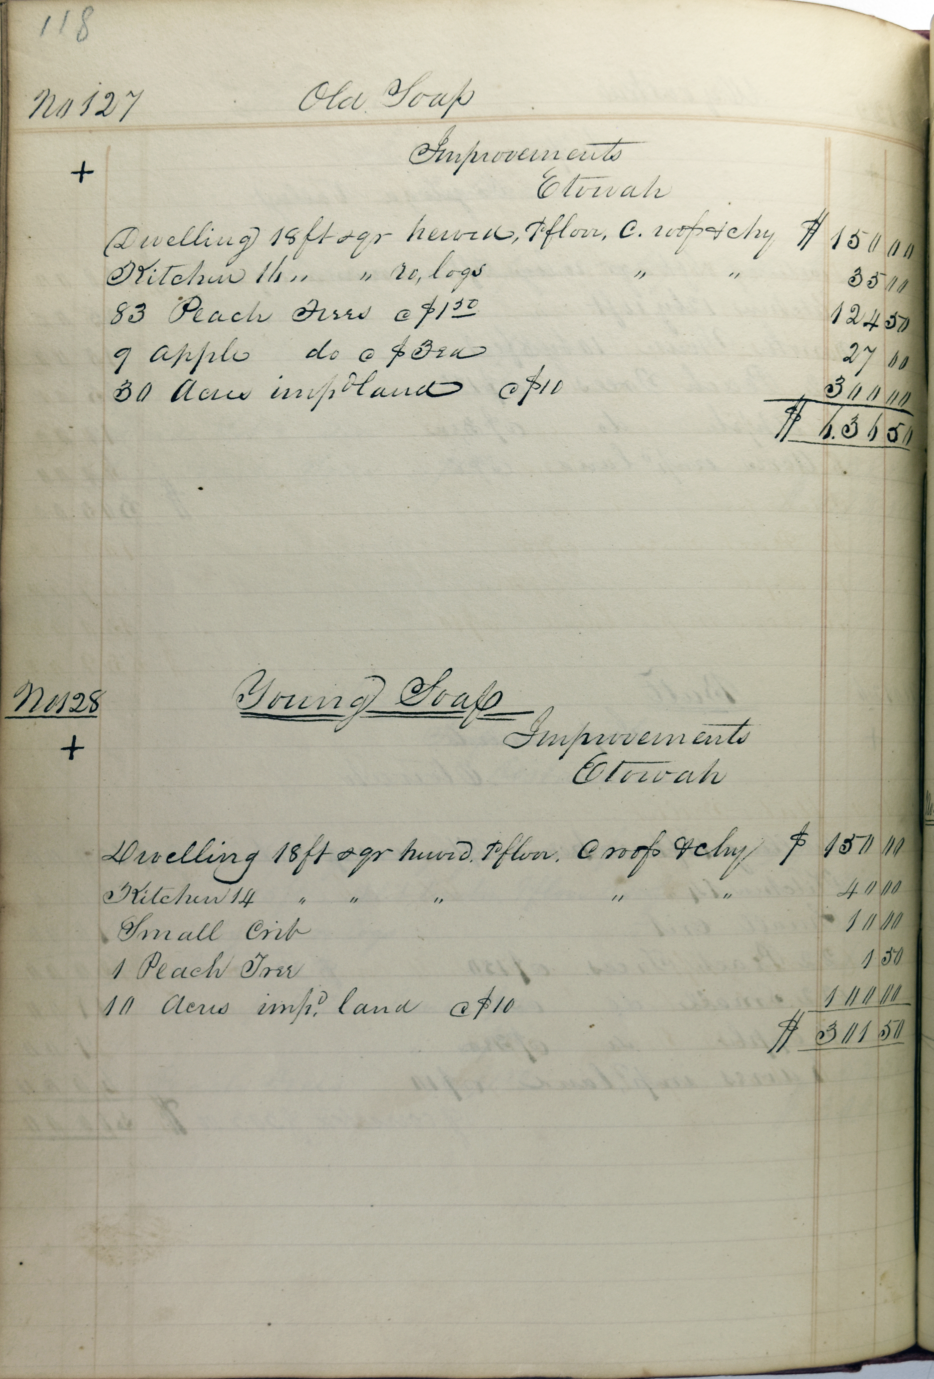 118
No 127 Old Soap
+
Improvements
Etowah
Dwelling 18 ft sqr hewed, P floor, C. roof & chy $ 150 00
Kitchen 16 " " ro, logs " " 35 00
83 Peach Trees @ $1 50 124 50
9 apple do @ $3 ea 27 00
30 Acres impd land @ $10 300 00
$ 636 50
No 128 Young Soap
+
Improvements
Etowah
Dwelling 18 ft sqr hewd. P floor. C roof & chy $ 150 00
Kitchen 14 " " " " " 40 00
Small Crib 10 00
1 Peach Tree 1 50
10 Acres impd. land @ $10 100 00
$ 301 50